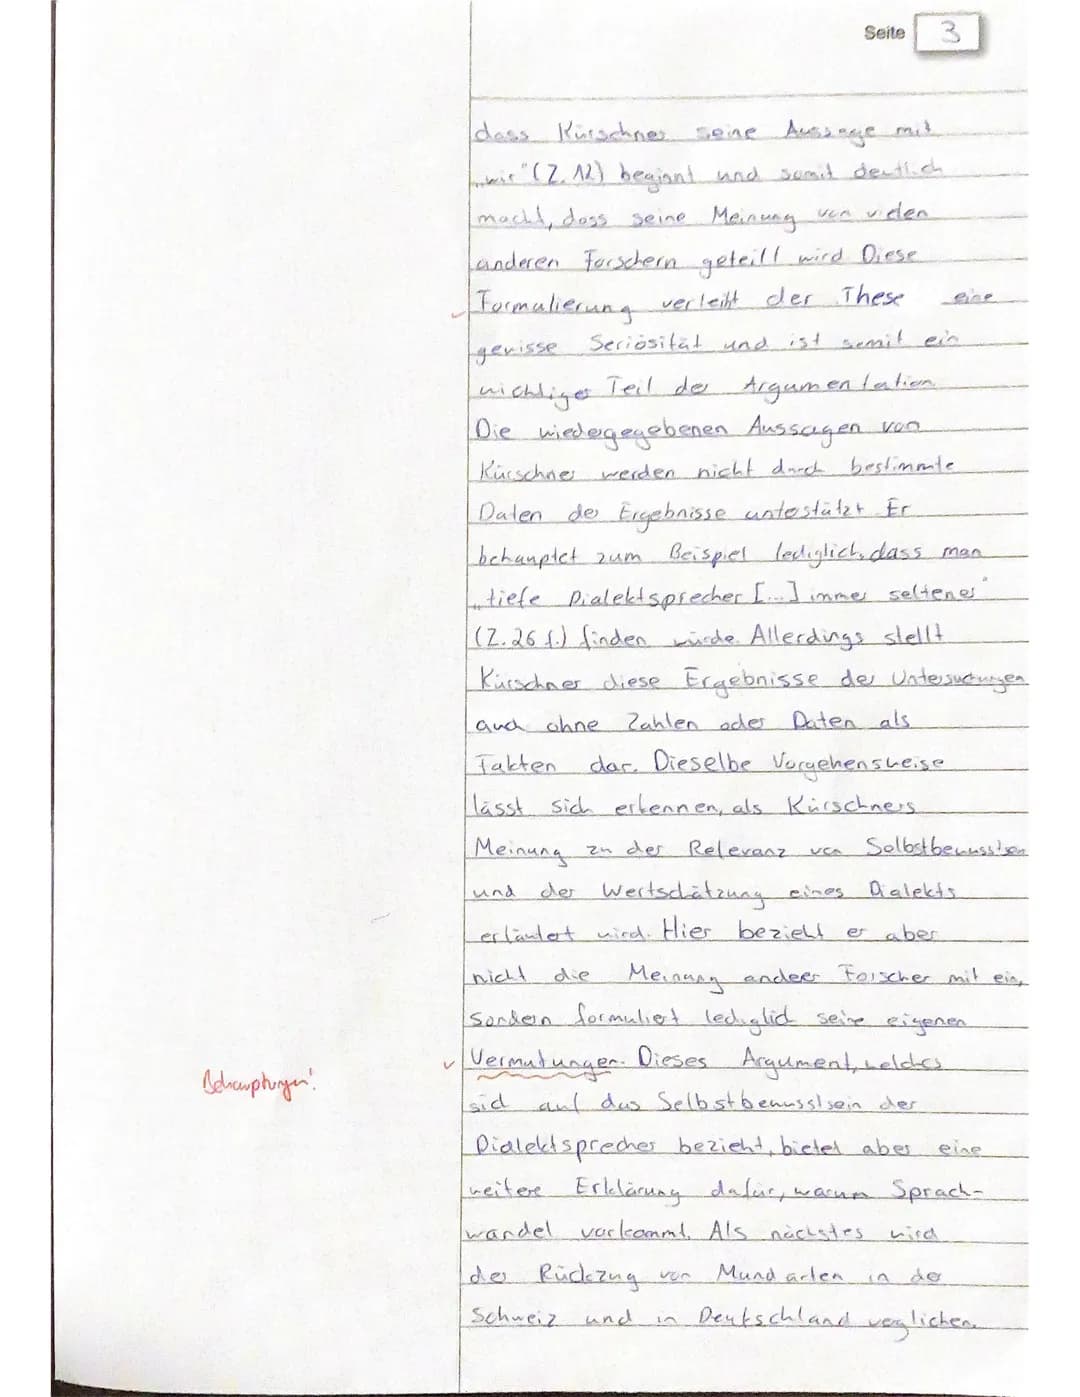 Seite 3
dass Kürschner seine Aussage mit
„wir" (Z. 12) beginnt und somit deutlich
macht, dass seine Meinung von vielen
anderen Forschern geteilt wird Diese
Formulierung verleiht der These eine
gewisse Seriösität und ist somit ein
wichtiger Teil der Argumentation
Die wiedergegebenen Aussagen von
Kürschner werden nicht durch bestimmte
Daten der Ergebnisse unterstützt Er
behauptet zum Beispiel lediglich, dass man
„tiefe Dialektsprecher [...] immer seltener"
(Z. 26 f.) finden würde. Allerdings stellt
Kürschner diese Ergebnisse der Untersuchungen
auch ohne Zahlen oder Daten als
Fakten dar. Dieselbe Vorgehensweise
lässt sich erkennen, als Kürschners
Meinung zu der Relevanz von Selbstbewusstsein
und der Wertschätzung eines Dialekts
erläutert wird. Hier bezieht er aber
nicht die Meinung anderer Forscher mit ein,
sondern formuliert lediglich seine eigenen
Vermutungen. Dieses Argument, welches
Behauptungen!
sich auf das Selbstbewusstsein der
Dialektsprecher bezieht, bietet aber eine
weitere Erklärung dafür, warum Sprach-
wandel vorkommt. Als nächstes wird
der Rückzug von Mundarten in der
Schweiz und in Deutschland verglichen.